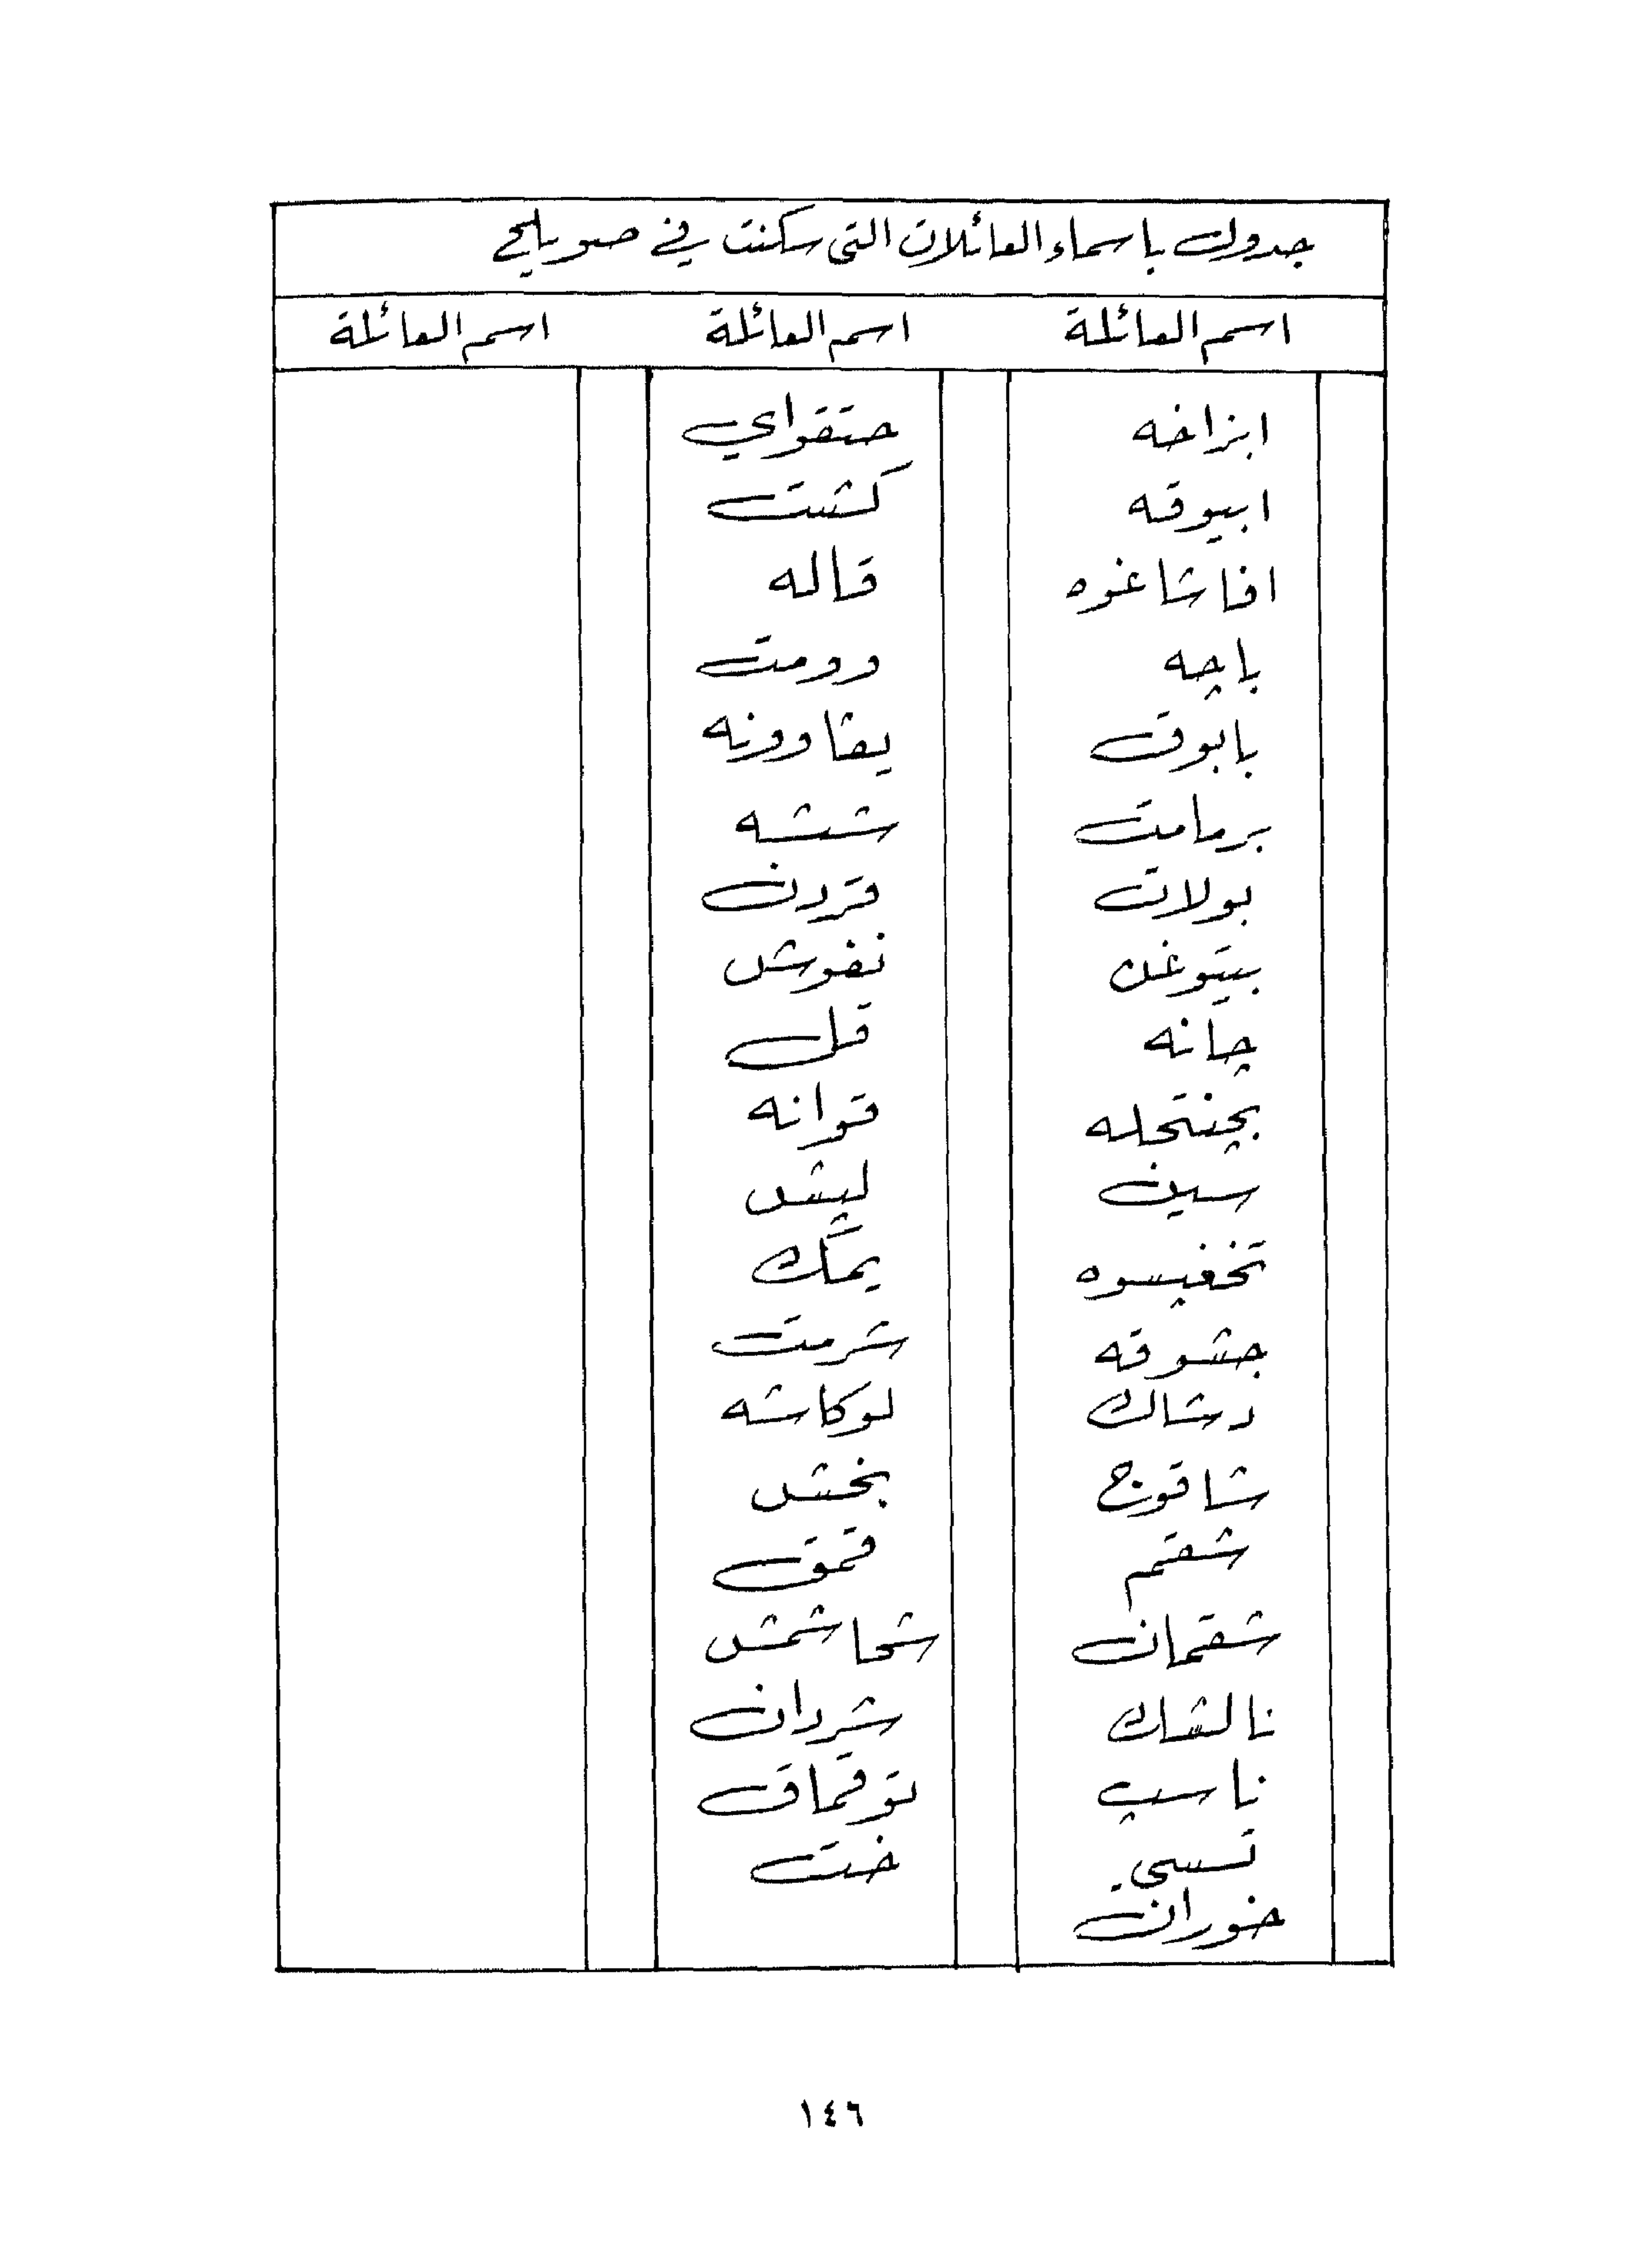 جدول باسماء العائلات التي سكنت في صويلح
اسم العائلة اسم العائلة اسم العائلة
ابزاخه حتقواي
ابيوقه كشت
افاشاغوه قاله
باچه وومت
بابوق يغاوونه
برمامت ششه
بولات قردن
بيتوغن نغوش
چانه قل
بچنتجله قوانه
سين ليپش
تخغپسوه يمك
جشوقه شرمت
دشاك لوكاشه
شاقوج بخش
شقم قمق
شقمان شحاشمش
نالشك شردان
ناسپ توقماق
تسي ختت
خوران
١٤٦